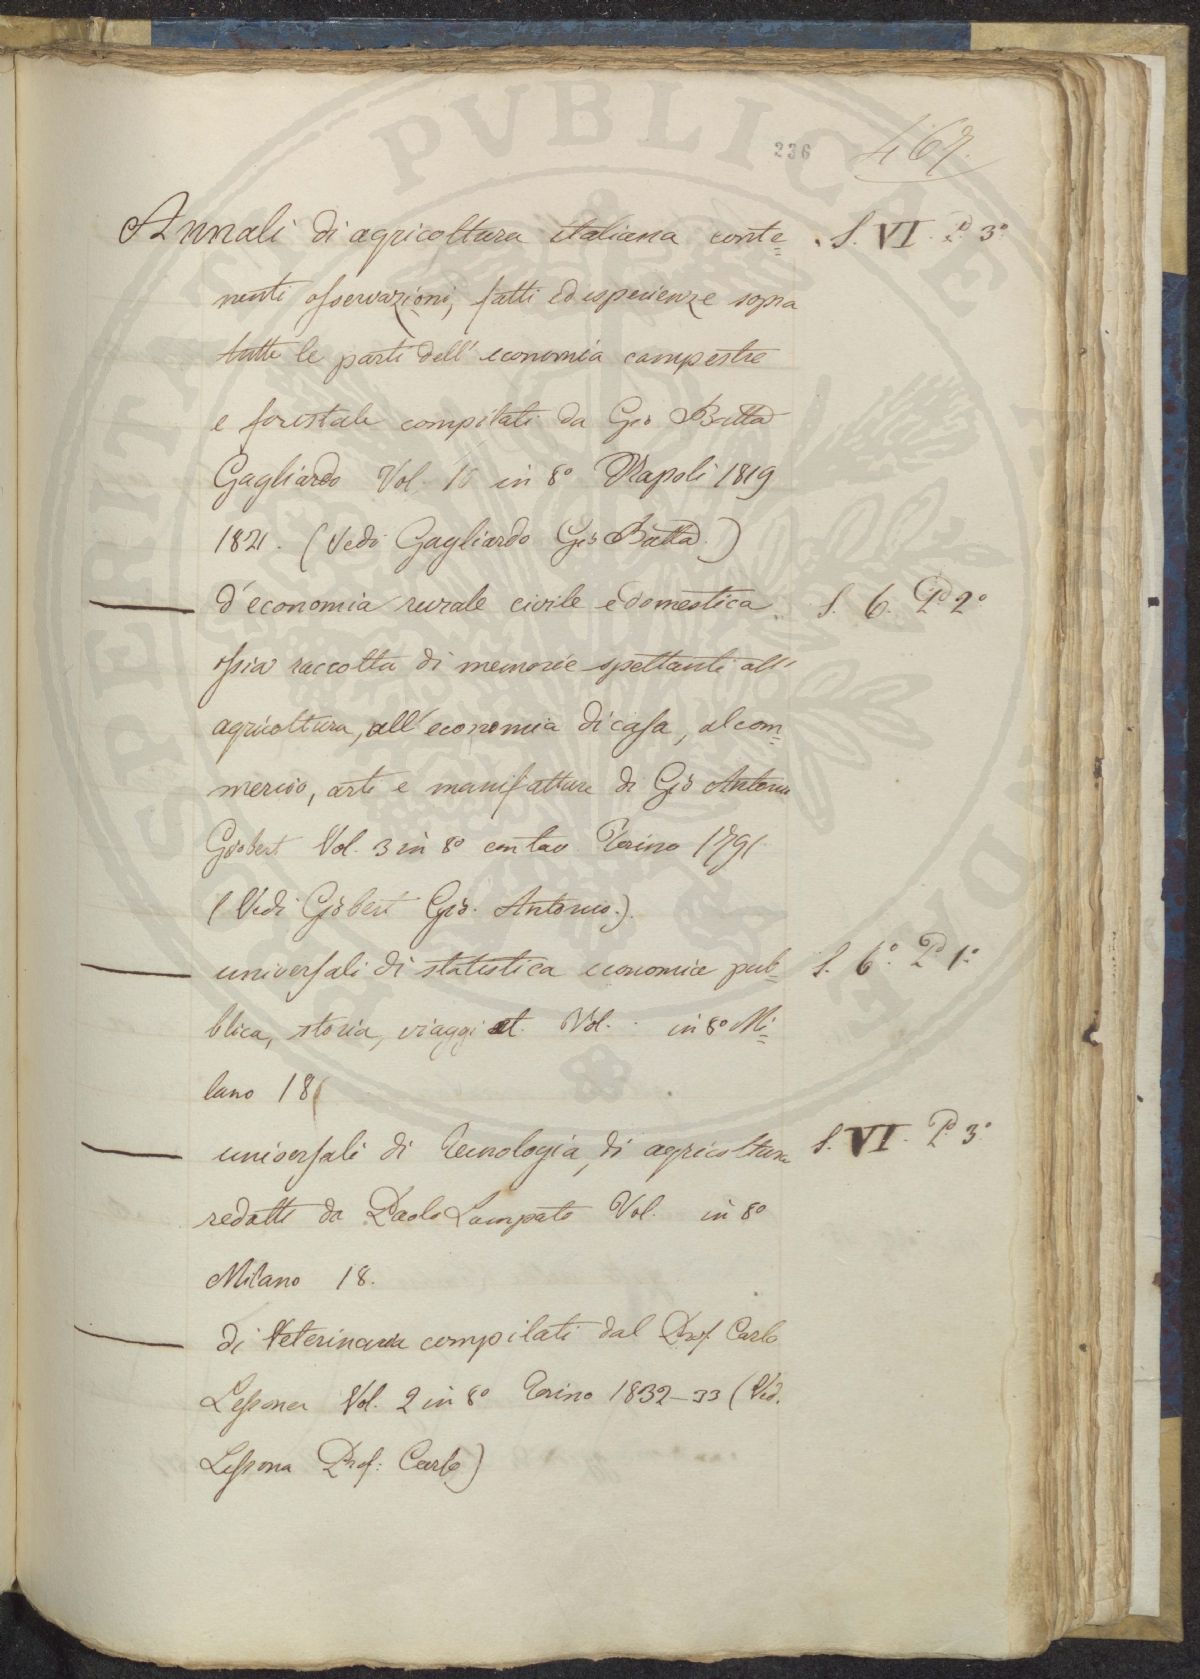 PUBLICAE
PROSPERITATI
236
467.
Annali di agricoltura italiana conte= S. VI. P. 3º
nenti osservazioni, fatti ed esperienze sopra
tutte le parti dell' economia campestre
e forestale compilati da Gio Batta
Gagliardo Vol. in 8º Napoli 1819
1821. (Vedi Gagliardo Gio Batta.)
— d'economia rurale civile e domestica S. 6. P. 2º
ossia raccolta di memorie spettanti all'
agricoltura, all' economia di casa, al com=
mercio, arti e manifatture di Giò Antonio
Giobert Vol. 3 in 8º con tav. Torino 1791.
(Vedi Giobert Giò. Antonio.)
— universali di statistica economia pub= S. 6º P. 1º
blica, storia, viaggi et. Vol. in 8º Mi=
lano 18
— universali di Tecnologia, di agricoltura S. VI. P. 3º
redatti da Paolo Lampato Vol. in 8º
Milano 18.
— di Veterinaria compilati dal Prof. Carlo
Lessona Vol. 2 in 8º Torino 1832-33 (Ved.
Lessona Prof. Carlo)